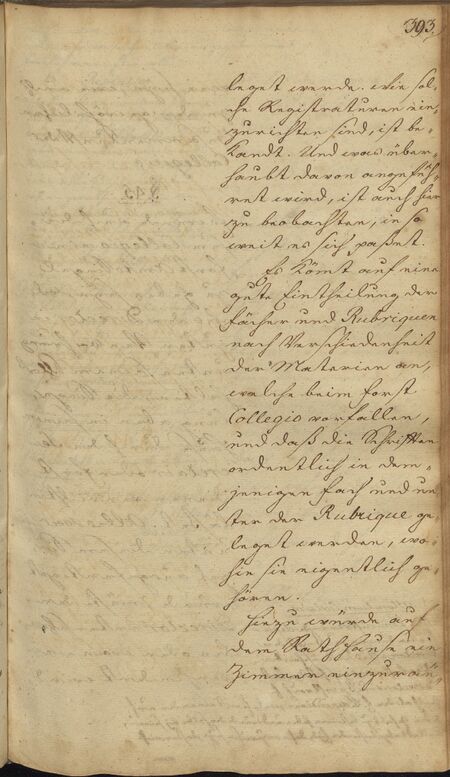 393.
leget werde. Wie sol-
che Registraturen ein-
zurichten sind, ist be-
kandt. Und was über-
haubt davon angefüh-
ret wird, ist auch hier
zu beobachten, in so
weit es sich paßet.
Es kömt auf eine
gute Eintheilung der
Fächer und Rubriquen
nach Verschiedenheit
der Materien an,
welche beim Forst
Collegio vorfallen,
und daß die Schriften
ordentlich in dem-
jenigen Fach und un
ter der Rubrique ge-
leget werden, wo-
hin sie eigentlich ge-
hören.
Hiezu würde auf
dem Rathhause ein
Zimmer einzuräu-